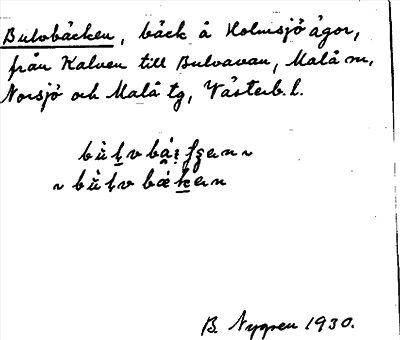 Bulvbäcken, bäck å Holmsjö ägor,
från Kalven till Bulvavan, Malå sn,
Norsjö och Malå tg, Västerb. l.
B. Nygren 1930.